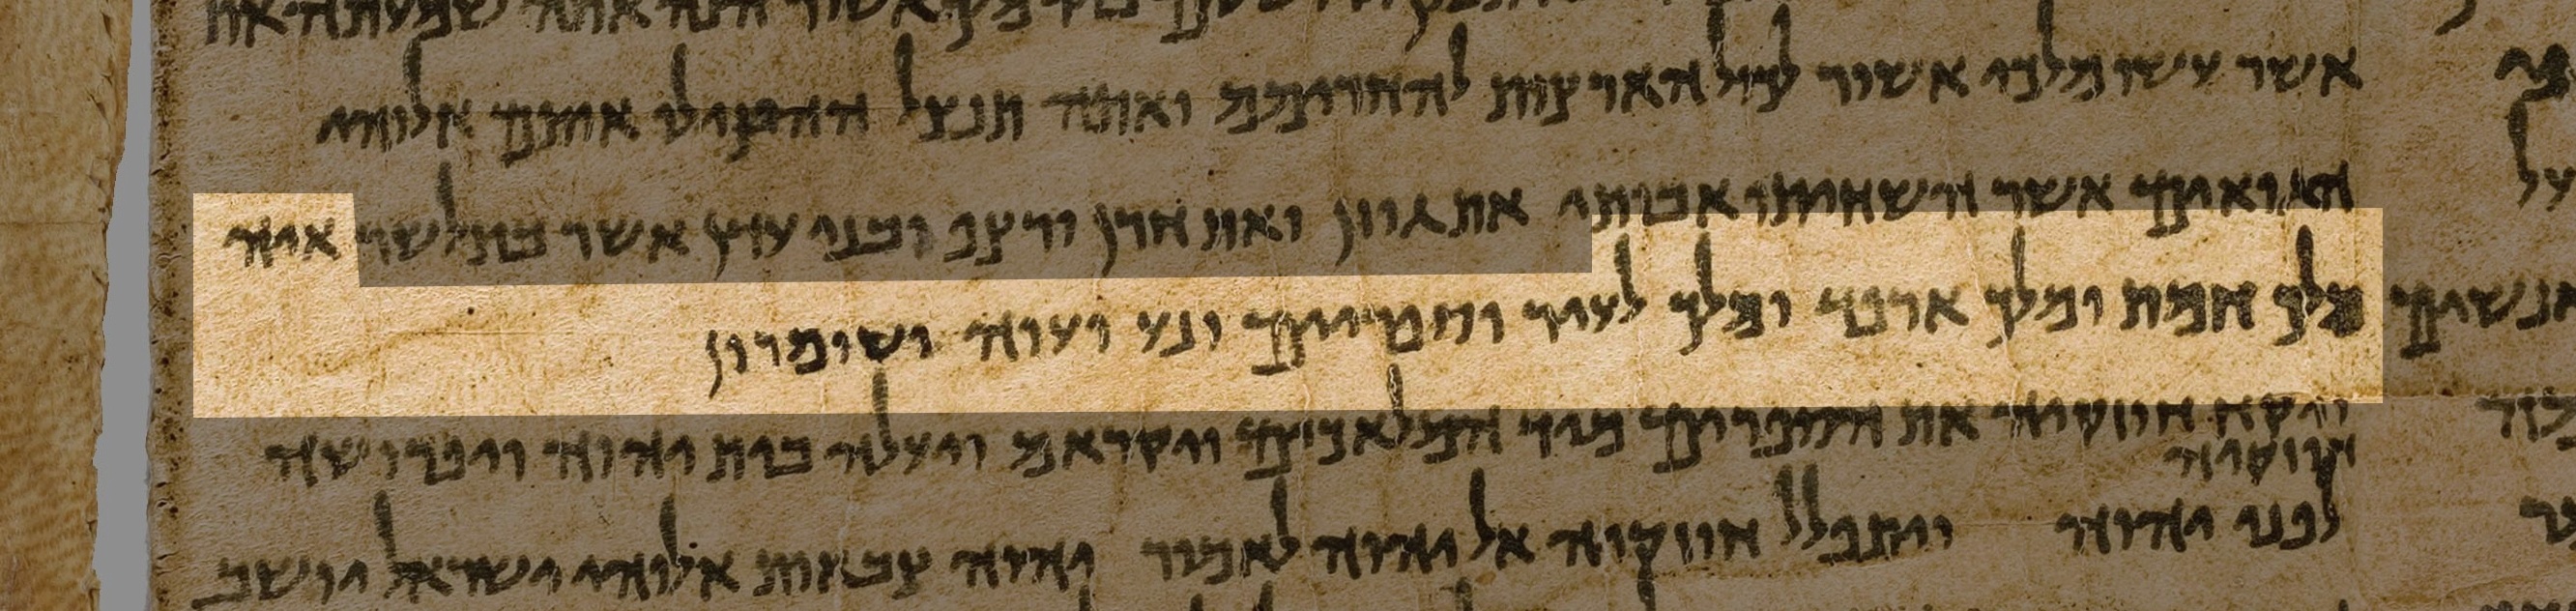 ביד מלך אשור הנה אתה שמעתה את
אשר עשו מלכי אשור לכול הארצות להחרימם ואתה תנצל ההצילו אותם אלוהי
על
הגואים אשר השחיתו אבותי את גוזן ואת חרן ורצפ ובני עדן אשר בתלשר איה
מלך חמת ומלך ארפד ומלך לעיר ספריים ונע ועוה ושומרון
ויקח חזקיה את הספרים מיד המלאכים ויקראם ויעלה בית יהוה ויפרושה
חזקיה
לפני יהוה ויתפלל חזקיה אל יהוה לאמור יהוה צבאות אלוהי ישראל יושב